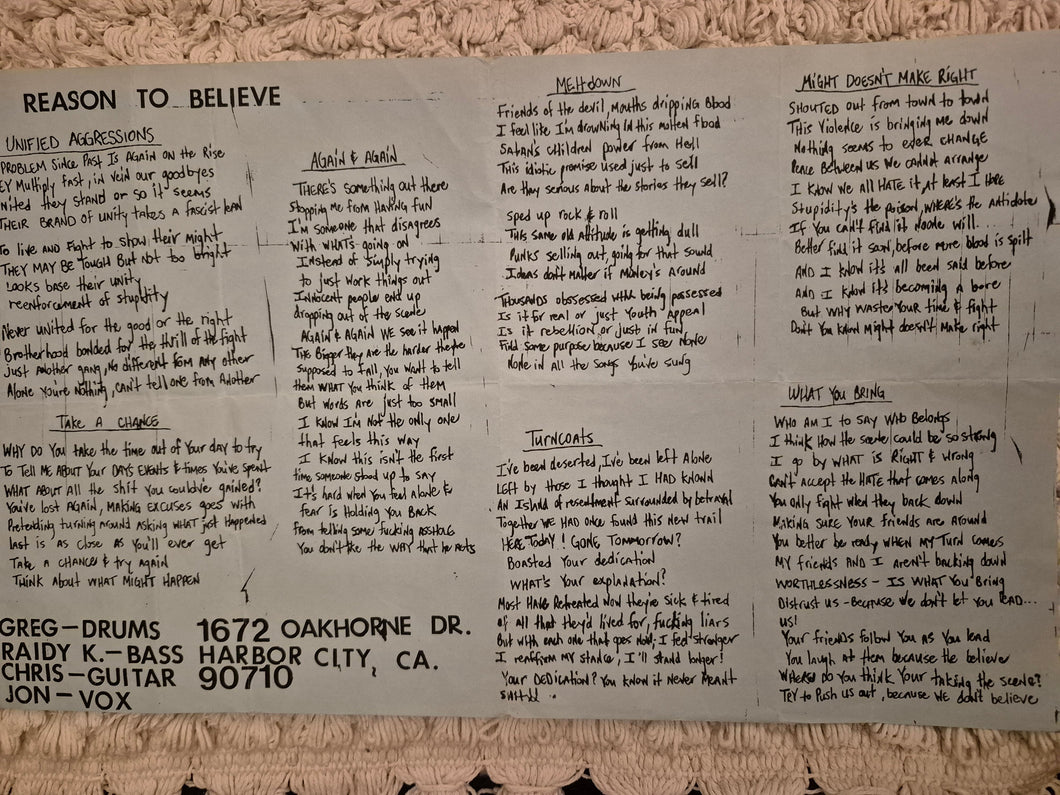 REASON TO BELIEVE
UNIFIED AGGRESSIONS
PROBLEM SINCE PAST IS AGAIN ON THE RISE
EY Multiply fast, in vein our goodbyes
nited they stand or so it seems
THEIR BRAND OF UNITY TAKES A FASCIST lEAN
To live AND Fight to show their might
THEY MAY BE TOUGH BUT NOT too bright
Looks base their unity
reenforcement of stupidity
Never united for the good or the right
Brotherhood bonded for the thrill of the fight
just Another gang, No different from Any other
Alone you're Nothing, can't tell one from Another
Take A CHANCE
WHY DO YOU take the time out of Your day to try
To TELL ME ABOUT Your DAYS EVENTS & times You've Spent
WHAT ABOUT All the Shit You could've gained?
You've lost AGAIN, MAKING EXCUSES goes with
Pretending turning around ASKING WHAT just happened
last is as close as You'll ever get
Take A CHANCE & try again
THINK About WHAT MIGHT HAPPEN
GREG—DRUMS
RAIDY K.—BASS
CHRIS—GUITAR
JON—VOX
1672 OAKHORNE DR.
HARBOR CITY, CA.
90710
AGAIN & AGAIN
THERE'S something out there
Stopping me from HAVING FUN
I'm someone that disagrees
With WHATS going on
Instead of Simply trying
to just work things out
INNOCENT people end up
dropping out of the scene
AGAIN & AGAIN WE see it happen
The Bigger they are the harder they're
supposed to fall, You want to tell
them WHAT You think of them
But words are just too small
I know I'm Not the only one
that feels this way
I know this isn't the first
time someone stood up to say
It's hard when You feel alone &
fear is Holding You Back
From telling some fucking asshole
You don't like the WAY that he Acts
MEltdown
Friends of the devil, Mouths dripping Blood
I feel like I'm drowning In this molten flood
SATAN'S Children power from Hell
This idiotic promise used just to sell
Are they serious about the stories they sell?
sped up rock & roll
This same old Attitude is getting dull
Punks selling out, going for that sound
Ideas don't matter if Money's Around
Thousands obssessed with being possessed
Is it for real or just Youth Appeal
Is it rebellion or just in fun
Find some purpose because I see None
None in all the Songs You've sung
Turncoats
I've been deserted, I've been left Alone
LEFT by those I thought I HAD KNOWN
AN Island of resentment surrounded by betrayal
Together WE HAD once found this New trail
HERE TODAY! GONE TOMMORROW?
Boasted Your dedication
WHAT'S Your explanation?
Most HAVE Retreated Now they're Sick & tired
of all that they'd lived for, fucking liars
But with each one that goes Now, I feel stronger
I reaffirm MY stance, I'll stand longer!
Your DEDICATION? You know it Never MEANT
SHIT!
MIGHT DOESN'T MAKE RIGHT
SHOUTED out from town to town
This Violence is bringing me down
Nothing seems to ever CHANGE
Peace Between us We cannot arrange
I know We all HATE it, at least I Hope
Stupidity's the poison, WHERE'S the Antidote
If You can't find it Noone will....
Better find it soon, before more blood is spilt
AND I know it's all been said before
AND I know it's becoming a bore
But WHY WASTE YOUR time & fight
Don't You know might doesn't make right
WHAT YOU BRING
WHO AM I to SAY WHO Belongs
I think How the scene could be so strong
I go by WHAT is RIGHT & Wrong
Can't accept the HATE that comes along
You only fight when they back down
Making sure YOUR friends are around
You better be ready WHEN MY turn comes
MY friends AND I aren't backing down
WORTHLESSNESS — IS WHAT YOU BRING
Distrust us — Because We don't let You lEAD...
us!
Your friends follow You as You lead
You laugh at them because the believe
WHERE do You think Your taking the scene?
TRY to Push us out, because WE don't believe